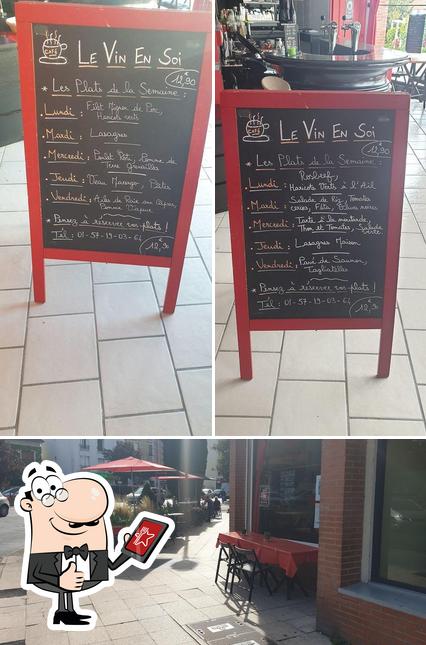 CAFÉ
LE VIN EN SOI
12,90
* Les Plats de la Semaine :
Lundi : Filet Mignon de Porc,
Haricots verts
Mardi : Lasagnes
Mercredi : Poulet Rôti, Pomme de
Terre Grenailles
Jeudi : Veau Marengo, Pâtes
Vendredi : Aile de Raie aux Câpres,
Pomme Vapeur
* Pensez à réserver vos plats !
Tél : 01-57-19-03-62
12,90
CAFÉ
LE VIN EN SOI
12,90
* Les Plats de la Semaine :
Lundi : Rosbeef,
Haricots Verts à l'Ail
Mardi : Salade de Riz, Tomates
cerises, Féta, Olives noires
Mercredi : Tarte à la moutarde,
Thon et Tomates, Salade
verte
Jeudi : Lasagnes Maison
Vendredi : Pavé de Saumon,
Tagliatelles
* Pensez à réserver vos plats !
Tél : 01-57-19-03-62
12,90